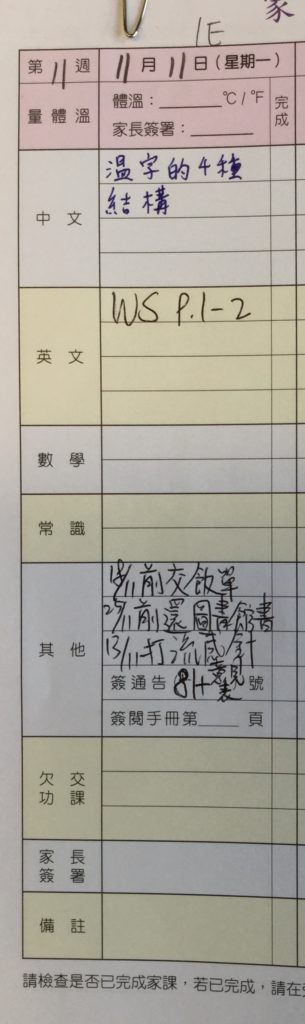 家
1E
第11週 11月11日(星期一)
量體溫 體溫:______°C/°F 完成
家長簽署:______
中文 温字的4種
結構
英文 WS P.1-2
數學
常識
其他 前交飯單
前還圖書館書
13/11打流感針
簽通告 81+意見表 號
簽閱手冊第____頁
欠交功課
家長簽署
備註
請檢查是否已完成家課,若已完成,請在